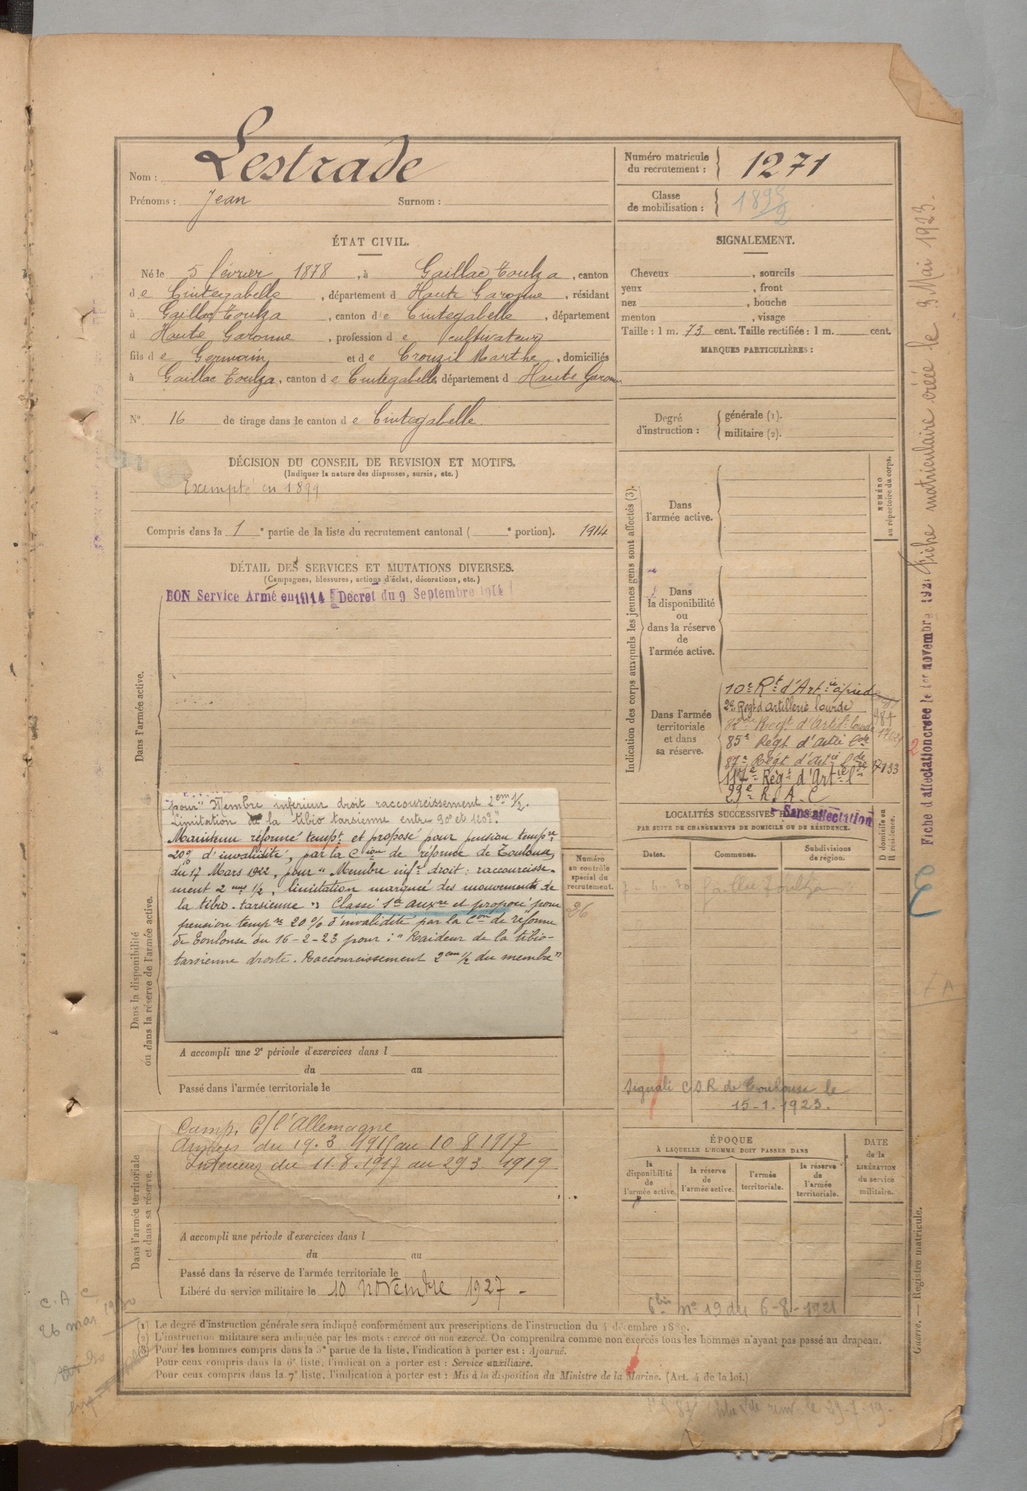 Nom : Lestrade
Prénoms : Jean Surnom :
Numéro matricule du recrutement : 1271
Classe de mobilisation :
ÉTAT CIVIL.
Né le 5 février 1878, à Gaillac Toulza, canton
de Cintegabelle, département d Haute Garonne, résidant
à Gaillac Toulza, canton de Cintegabelle, département
d Haute Garonne, profession de cultivateur
fils de Germain et de Crouzil Marthe, domiciliés
à Gaillac Toulza, canton de Cintegabelle, département d Haute Garonne
N° 16 de tirage dans le canton de Cintegabelle
DÉCISION DU CONSEIL DE REVISION ET MOTIFS.
(Indiquer la nature des dispenses, sursis, etc.)
Exempté en 1899
Compris dans la 1e partie de la liste du recrutement cantonal ( e portion). 1914
DÉTAIL DES SERVICES ET MUTATIONS DIVERSES.
(Campagnes, blessures, actions d'éclat, décorations, etc.)
BON Service Armé en 1914 Décret du 9 Septembre 1914
Dans l'armée active.
"pour" Membre inférieur droit raccourcissement 2 cm 1/2.
Limitation de la tibio tarsienne entre 90 et 120°."
Maintenu réformé tempre et proposé pour pension tempre
20% d'invalidité, par la Cion de réforme de Toulouse,
du 17 Mars 1922, pour "Membre infr droit : raccourcisse-
ment 2 cm 1/2, limitation marquée des mouvements de
la tibio-tarsienne". Classé 1er auxre et proposé pour
pension tempre 20% d'invalidité par la Con de réforme
de Toulouse du 16-2-23 pour : "Raideur de la tibio-
tarsienne droite. Raccourcissement 2 cm 1/2 du membre"
Dans la disponibilité
ou dans la réserve de l'armée active.
Numéro
au contrôle
spécial du
recrutement.
A accompli une 2e période d'exercices dans l
du au
Passé dans l'armée territoriale le
Camp. C/ l'Allemagne
Armées du 19.3 1915 au 10 8 1917
Intérieur du 11.8.1917 au 29 3 1919
Dans l'armée territoriale
et dans sa réserve.
A accompli une période d'exercices dans l
du au
Passé dans la réserve de l'armée territoriale le
Libéré du service militaire le 10 novembre 1927 -
SIGNALEMENT.
Cheveux , sourcils
yeux , front
nez , bouche
menton , visage
Taille : 1 m. 73 cent. Taille rectifiée : 1 m. cent.
MARQUES PARTICULIÈRES :
Degré d'instruction : générale (1).
militaire (2).
Indication des corps auxquels les jeunes gens sont affectés (3).
NUMÉRO
au répertoire du corps.
Dans
l'armée active.
Dans
la disponibilité
ou
dans la réserve
de
l'armée active.
Dans l'armée
territoriale
et dans
sa réserve.
10e Rt d'Artie à pied
2e Régt d'artillerie lourde
85e Régt d'artie lde
87e Régt d'artie lde
117e Régt d'Artie lde
Sans affectation
LOCALITÉS SUCCESSIVES
PAR SUITE DE CHANGEMENTS DE DOMICILE OU DE RÉSIDENCE.
Dates. Communes. Subdivisions de région. D domicile ou R résidence.
Gaillac Toulza
Signalé C S R de Toulouse le
15-1-1923.
ÉPOQUE
À LAQUELLE L'HOMME DOIT PASSER DANS
la disponibilité de l'armée active.
la réserve de l'armée active.
l'armée territoriale.
la réserve de l'armée territoriale.
DATE de la LIBÉRATION du service militaire.
n° 19 du 6-8-1921
(1) Le degré d'instruction générale sera indiqué conformément aux prescriptions de l'instruction du 4 décembre 1889.
(2) L'instruction militaire sera indiquée par les mots : exercé ou non exercé. On comprendra comme non exercés tous les hommes n'ayant pas passé au drapeau.
(3) Pour les hommes compris dans la 5e partie de la liste, l'indication à porter est : Ajourné.
Pour ceux compris dans la 6e liste, l'indication à porter est : Service auxiliaire.
Pour ceux compris dans la 7e liste, l'indication à porter est : Mis à la disposition du Ministre de la Marine. (Art. 4 de la loi.)
Fiche matriculaire créée le 9 Mai 1923.
Fiche d'affectation créée le 1er novembre 1921
Guerre. — Registre matricule.
C.A.C.
26 mai 1930